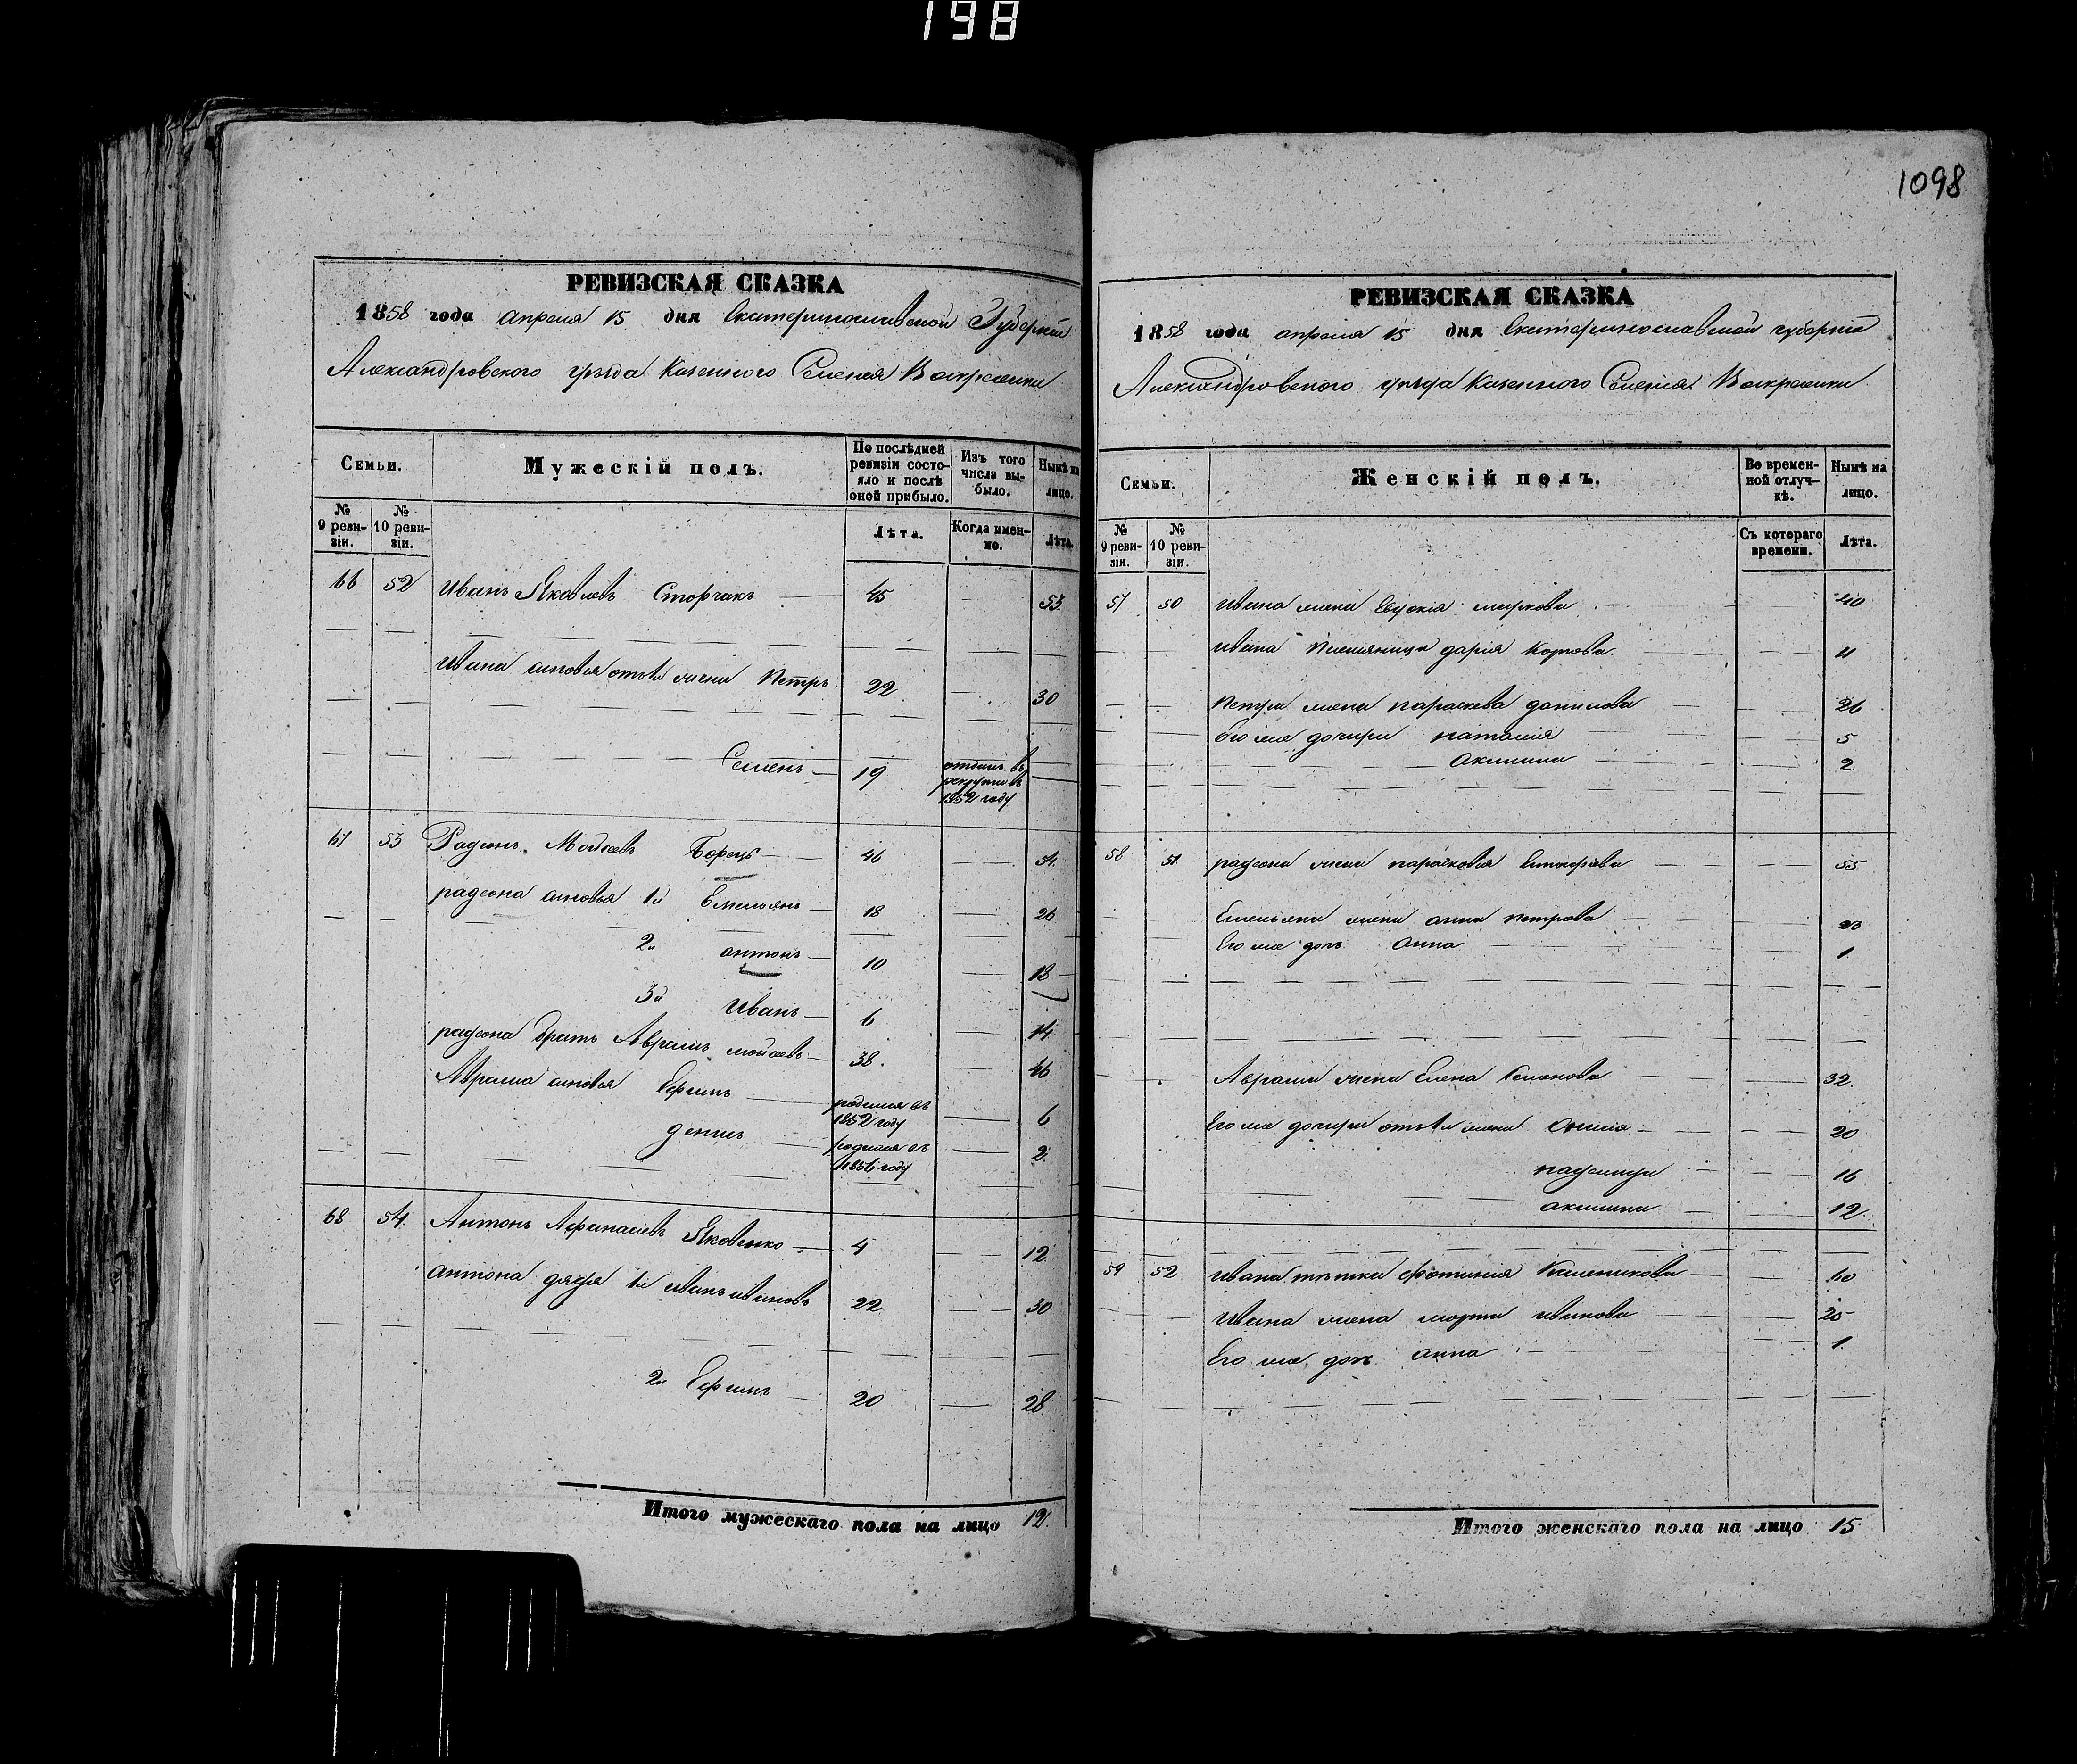 198
1098
РЕВИЗСКАЯ СКАЗКА
1858 года апреля 15 дня Екатеринославской Губернии
Александровского уѣзда Казенного Селения Воскресенки
Семьи.
Мужескій полъ.
По послѣдней ревизіи состояло и послѣ оной прибыло.
Изъ того числа выбыло.
Нынѣ на лицо.
№ 9 ревизіи.
№ 10 ревизіи.
Лѣта.
Когда именно.
Лѣта.
66 52 Иванъ Яковлевъ Сторчакъ 45 53
Ивана сыновья отъ 1й жены Петръ 22 30
Семенъ 19 отданъ въ рекруты въ 1852 году
67 53 Радионъ Мойсеевъ Борецъ 46 54
радиона сыновья 1й Емельянъ 18 26
2й антонъ 10 18
3й Иванъ 6 14
радиона братъ Аврамъ мойсеевъ 38 46
Аврама сыновья Ефимъ родился въ 1852 году 6
денисъ родился въ 1856 году 2
68 54 Антонъ Афанасіевъ Яковенко 4 12
антона дядя 1й иванъ ивановъ 22 30
2й Ефимъ 20 28
Итого мужескаго пола на лицо 12
РЕВИЗСКАЯ СКАЗКА
1858 года апреля 15 дня Екатеринославской губернии
Александровского уѣзда Казенного Селения Воскресенки
Семьи.
Женскій полъ.
Во временной отлучкѣ.
Нынѣ на лицо.
№ 9 ревизіи.
№ 10 ревизіи.
Съ котораго времени.
Лѣта.
57 50 Ивана жена Евдокия маркова 40
Ивана племяница дария Карпова 11
Петра жена параскева данилова 26
Его же дочери наталия 5
Акилина 2
58 51 радиона жена парасковия 55
Емельяна жена анна петрова 23
Его же дочь Анна 1
Аврама жена Елена Семенова 32
Его же дочери отъ 1й жены 20
16
акилина 12
59 52 Ивана тетка фотиния 60
Ивана жена марфа иванова 25
Его же дочь анна 1
Итого женскаго пола на лицо 15